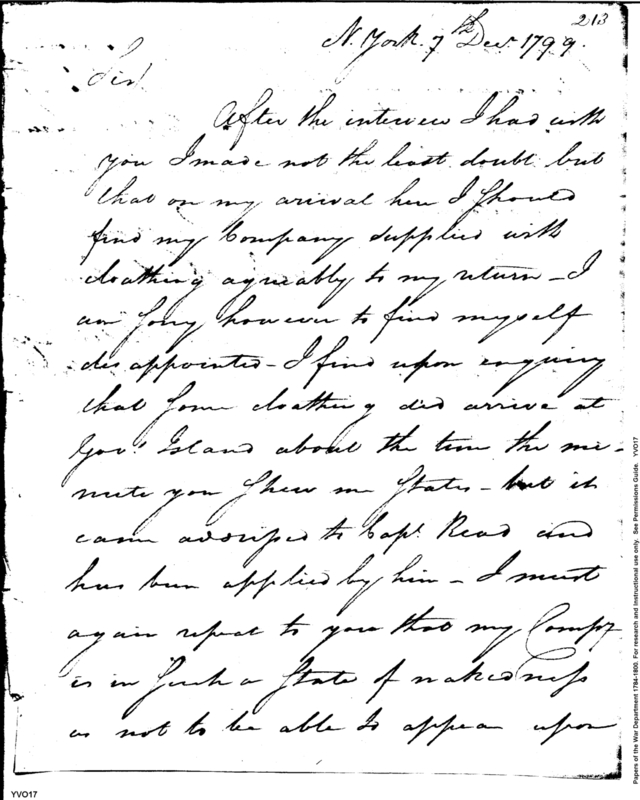 213
N. York 7th Decr. 1799.
Sir
After the interview I had with
you I made not the least doubt but
that on my arival here I should
find my Company supplied with
cloathing agreably to my return – I
am sorry however to find myself
disappointed – I find upon enquiry
that some cloathing did arrive at
Govr. Island about the time the mi-
nute you shew me States – but it
came addressed to Capt. Read and
has been applied by him – I must
again repeat to you that my Compy
is in such a State of nakedness
as not to be able to appear upon
YVO17
Papers of the War Department 1784-1800. For research and instructional use only. See Permissions Guide. YVO17